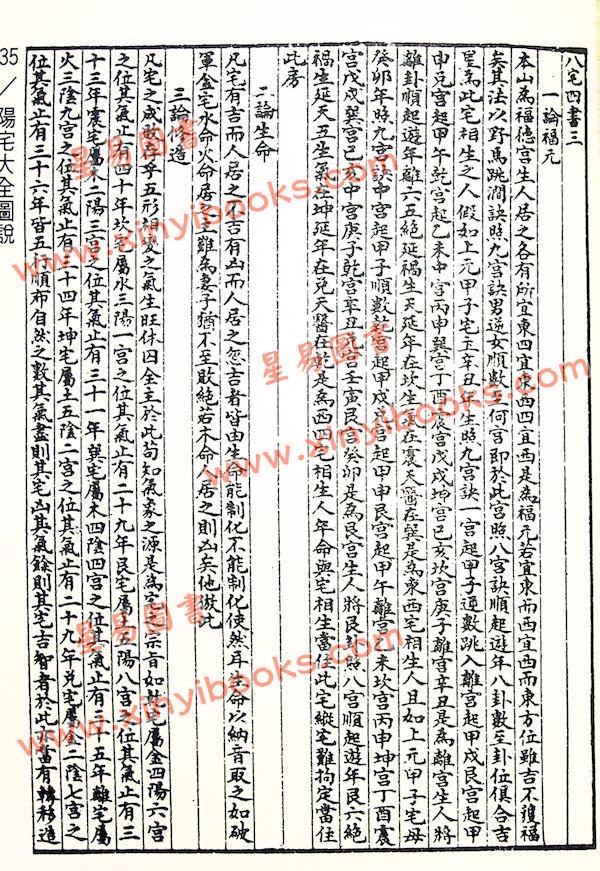 八宅四書三
一論福元
本山為福德宮生人居之各有所宜東四宜東西四宜西是為福元若宜東而西宜西而東方位雖吉不獲福
矣其法以野馬跳澗訣照九宮訣男逆女順數至何宮即於此宮照八宮訣順起遊年八卦數至卦位俱合吉
星為此宅相生之人假如上元甲子宅主辛丑年生照九宮訣一宮起甲子逆數跳入離宮起甲戌艮宮起甲
申兌宮起甲午乾宮起乙未中宮丙申巽宮丁酉震宮戊戌坤宮己亥坎宮庚子離宮辛丑是為離宮生人將
離卦順起遊年離六五絕延禍生天延年在坎生氣在震天醫在巽是為東四宅相生人且如上元甲子宅母
癸卯年照九宮訣中宮起甲子順數乾宮起甲戌兌宮起甲申艮宮起甲午離宮乙未坎宮丙申坤宮丁酉震
宮戊戌巽宮己亥中宮庚子乾宮辛丑兌宮壬寅艮宮癸卯是為艮宮生人將艮卦照八宮順起遊年艮六絕
禍生延天五生氣在坤延年在兌天醫在乾是為西四宅相生人年命與宅相生當住此宅縱宅難拘定當住
此房
二論生命
凡宅有吉而人居之不吉有凶而人居之忽吉者皆由生命能制化不能制化使然耳生命以納音取之如破
軍金宅水命火命居之主難為妻子猶不至敗絕若木命人居之則凶矣他倣此
三論修造
凡宅之成敗存乎五形相變之氣生旺休囚全主於此苟知氣裒之源是為宅之宗旨如乾宅屬金四陽六宮
之位其氣止有四十年坎宅屬水三陽一宮之位其氣止有二十九年艮宅屬土五陽八宮之位其氣止有三
十三年震宅屬木二陽三宮之位其氣止有三十一年巽宅屬木四陰四宮之位其氣止有三十五年離宅屬
火三陰九宮之位其氣止有二十四年坤宅屬土五陰二宮之位其氣止有二十九年兌宅屬金二陰七宮之
位其氣止有三十六年皆五行順布自然之數其氣盡則其宅凶其氣餘則其宅吉智者於此亦當有轉移造
35/陽宅大全圖說
星易圖書
www.xinyibooks.com
星易圖書
www.xinyibooks.com
星易圖書
www.xinyibooks.com